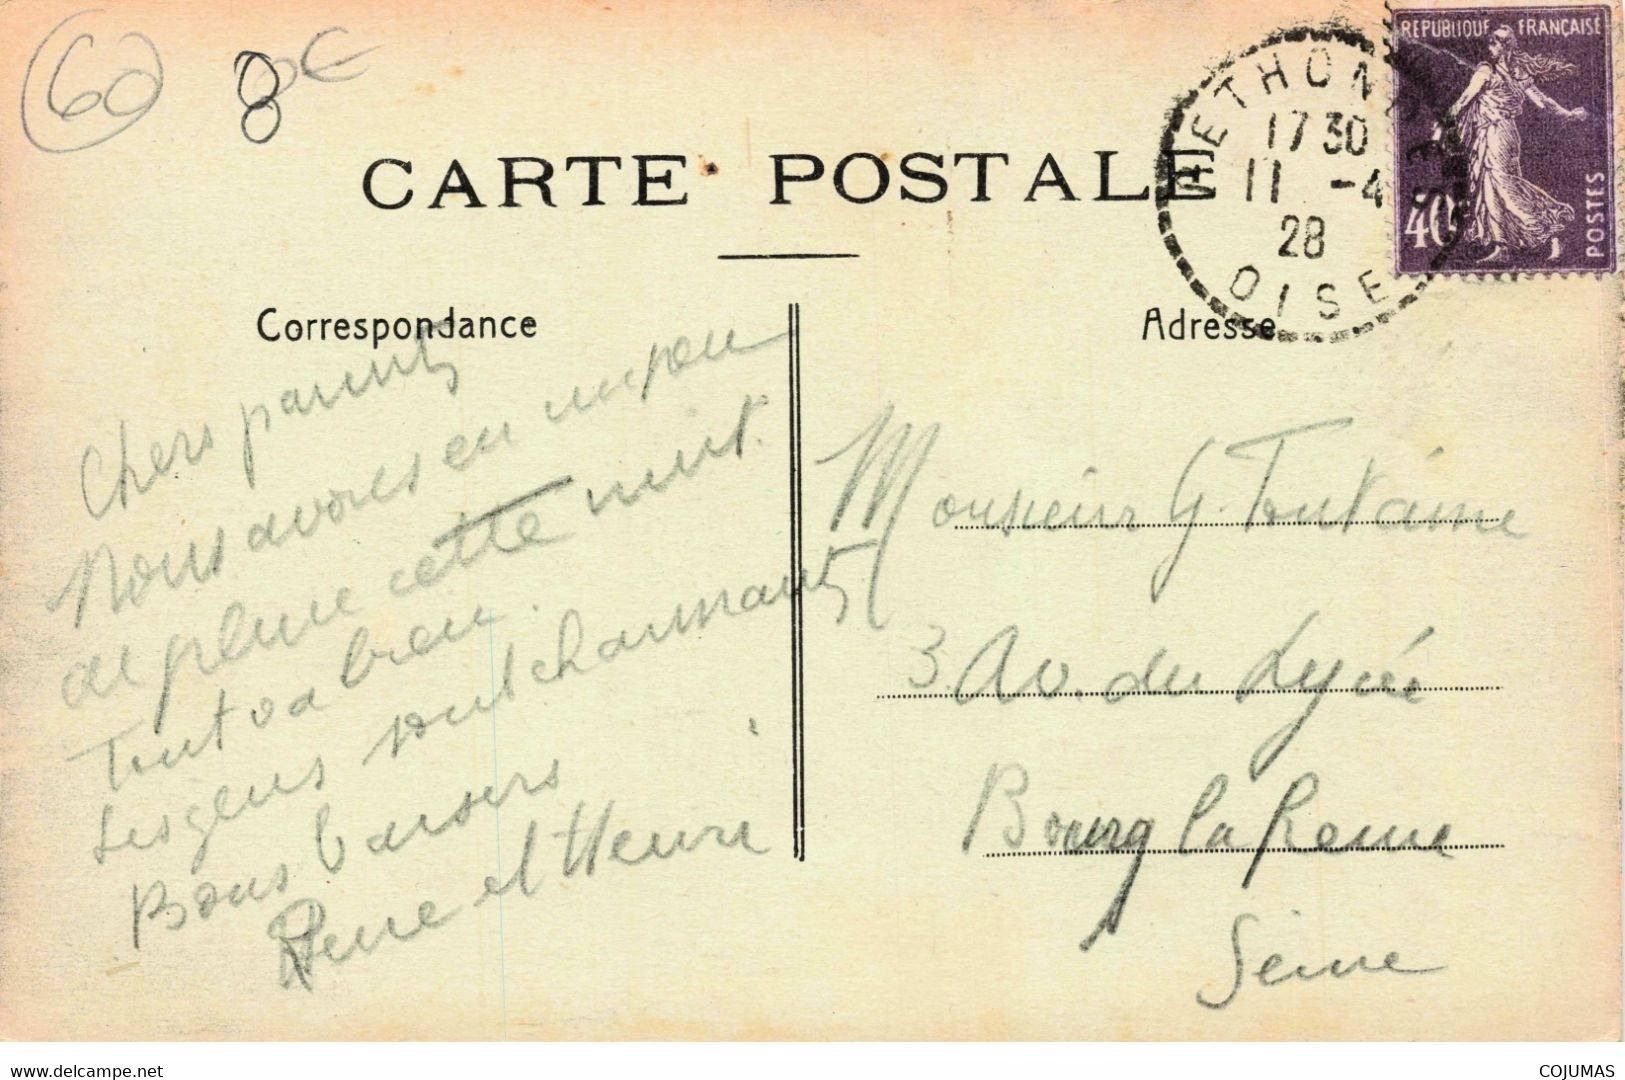 60 8 0€
CARTE POSTALE
RETHONDES
17 30
11 -4
28
OISE
REPUBLIQUE FRANÇAISE
40
POSTES
Correspondance
Chers parents
Nous avons eu un peu
de pluie cette nuit.
Tout va bien.
Les gens sont charmants
Bons baisers
Rene et Henri
Adresse
Monsieur G. Fontaine
3. Av. du Lycée
Bourg la Reine
Seine
COJUMAS